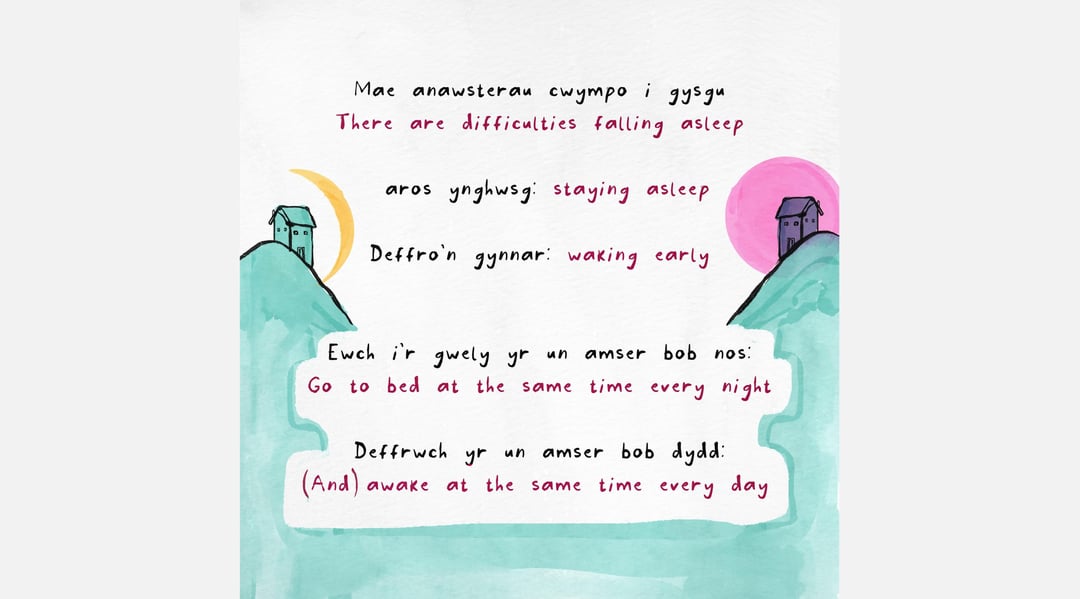 Mae anawsterau cwympo i gysgu
There are difficulties falling asleep
aros ynghwsg: staying asleep
Deffro'n gynnar: waking early
Ewch i'r gwely yr un amser bob nos:
Go to bed at the same time every night
Deffrwch yr un amser bob dydd:
(And) awake at the same time every day